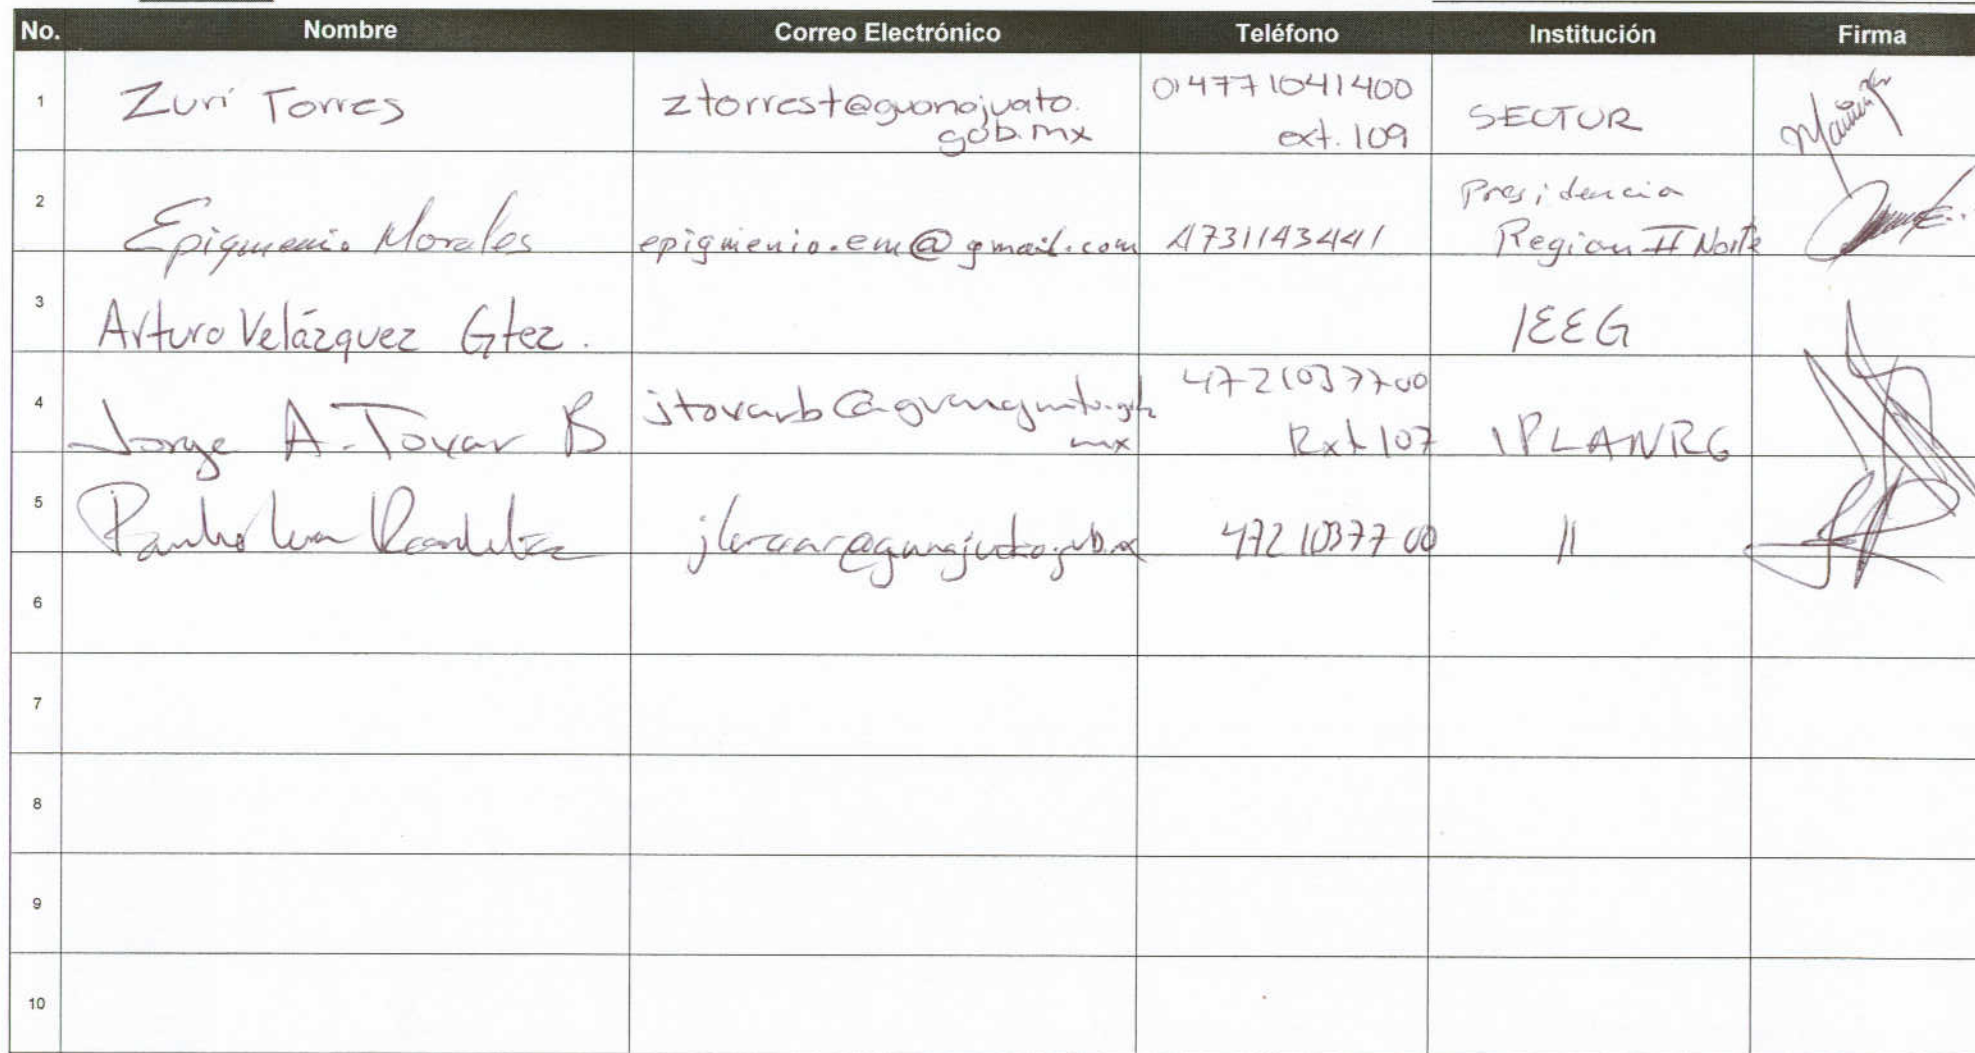 No. Nombre Correo Electrónico Teléfono Institución Firma
1 Zuri Torres ztorrest@guanajuato. 014771041400 SECTUR
gob.mx ext. 109
2 Epigmenio Morales epigmenio.em@gmail.com 4731143441 Presidencia
Region II Norte
3 Arturo Velázquez Gtez. IEEG
4 Jorge A. Tovar B jtovarb@guanajuato.gob 4721037700 IPLANEG
mx Ext 107
5 4721037700 11
6
7
8
9
10